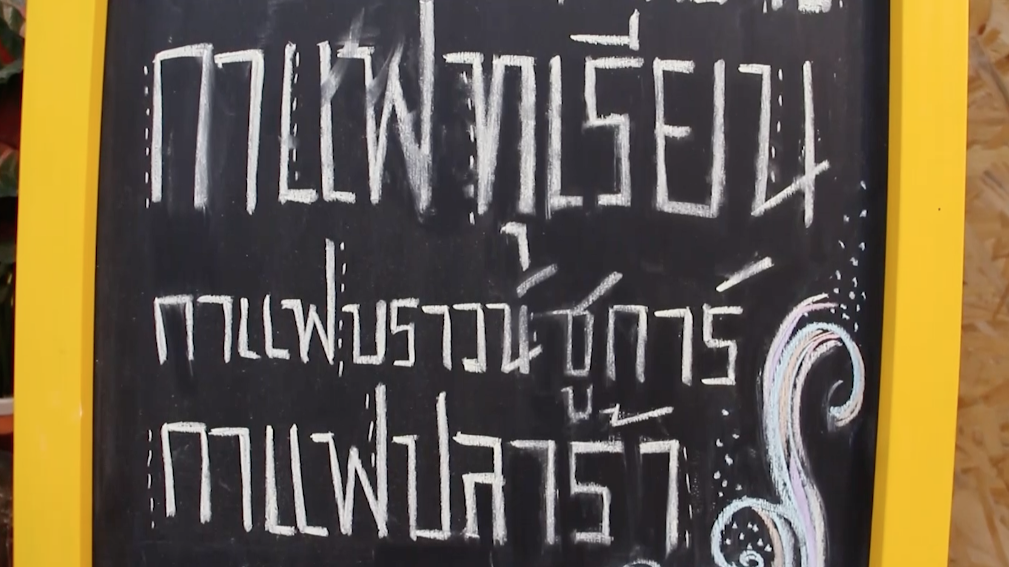 กาแฟทุเรียน
กาแฟบราวน์ชูการ์
กาแฟปลาร้า